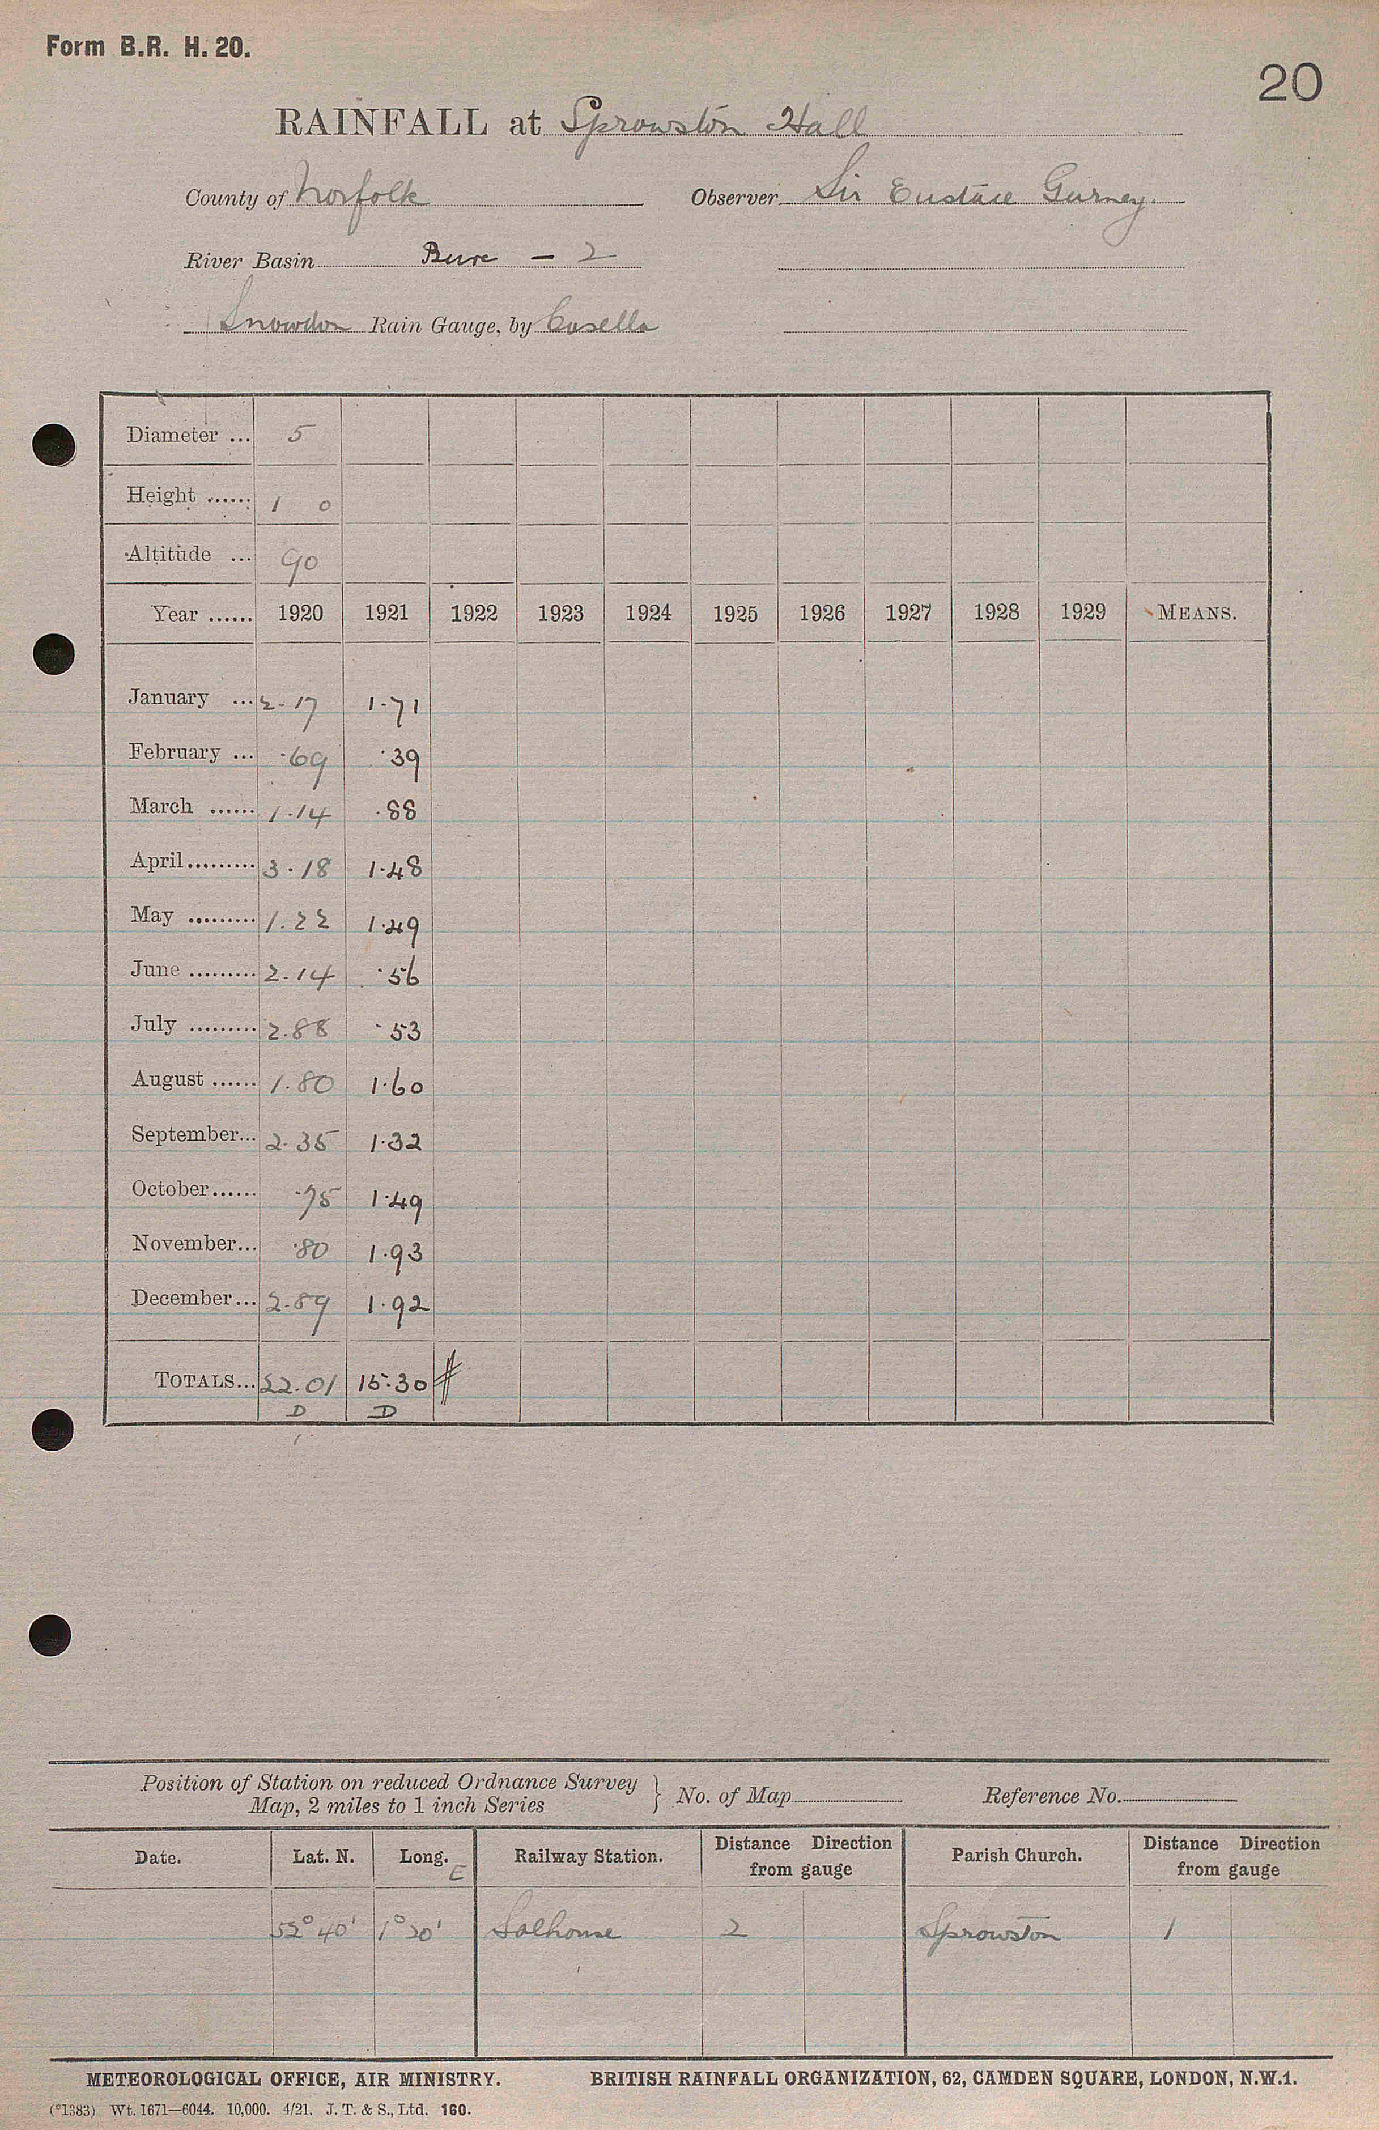 Form B.R. H. 20.
20
RAINFALL at Sprowston Hall
County of Norfolk Observer Sir Eustace Gurney.
River Basin Bure - 2
Snowdon Rain Gauge, by Casella
Diameter ... 5
Height ...... 1 0
Altitude ... 90
Year ...... 1920 1921 1922 1923 1924 1925 1926 1927 1928 1929 MEANS.
January ... 2.17 1.71
February ... .69 .39
March ...... 1.14 .88
April ......... 3.18 1.48
May ......... 1.22 1.49
June ......... 2.14 .56
July ......... 2.88 .53
August ...... 1.80 1.60
September... 2.35 1.32
October...... .75 1.49
November... .80 1.93
December... 2.89 1.92
TOTALS... 22.01 15.30 #
D D
Position of Station on reduced Ordnance Survey
Map, 2 miles to 1 inch Series } No. of Map Reference No.
Date. Lat. N. Long. E Railway Station. Distance Direction from gauge Parish Church. Distance Direction from gauge
52° 40' 1° 20' Salhouse 2 Sprowston 1
METEOROLOGICAL OFFICE, AIR MINISTRY. BRITISH RAINFALL ORGANIZATION, 62, CAMDEN SQUARE, LONDON, N.W.1.
(*1383) Wt. 1671—6044. 10,000. 4/21. J. T. & S., Ltd. 160.